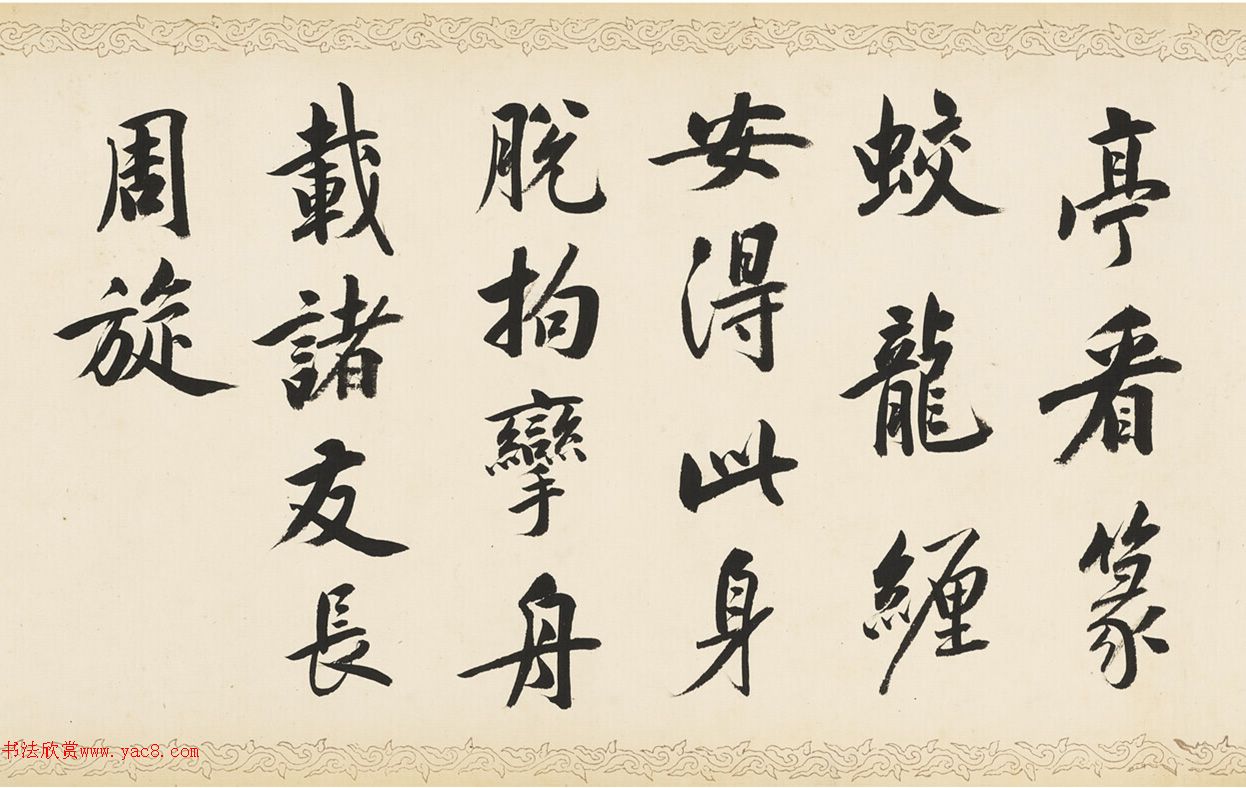 亭看篆
蛟龍纏
安得此身
脫拘攣舟
載諸友長
周旋
书法欣赏www.yac8.com